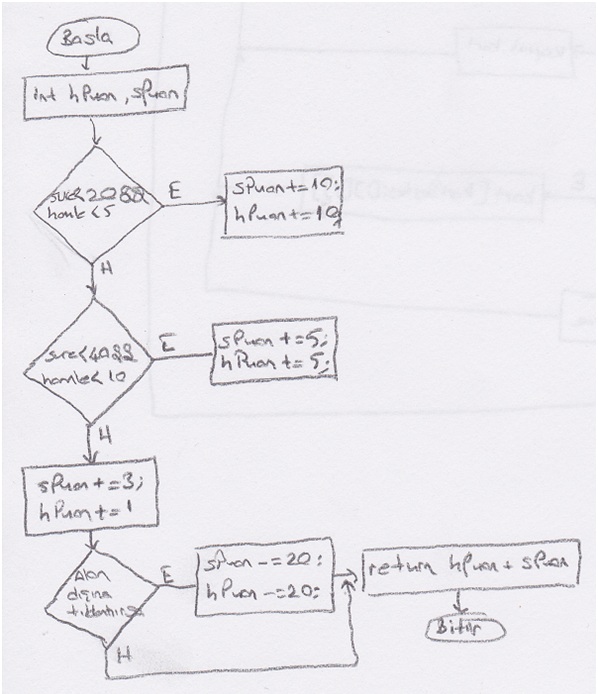 Basla
int hPuan, sPuan
sure<20&&
hamle<5
E
sPuan+=10;
hPuan+=10;
H
sure<40&&
hamle<10
E
sPuan+=5;
hPuan+=5;
H
sPuan+=3;
hPuan+=1
Alan
dışına
E
sPuan-=20;
hPuan-=20;
return hPuan+sPuan
H
Bitir